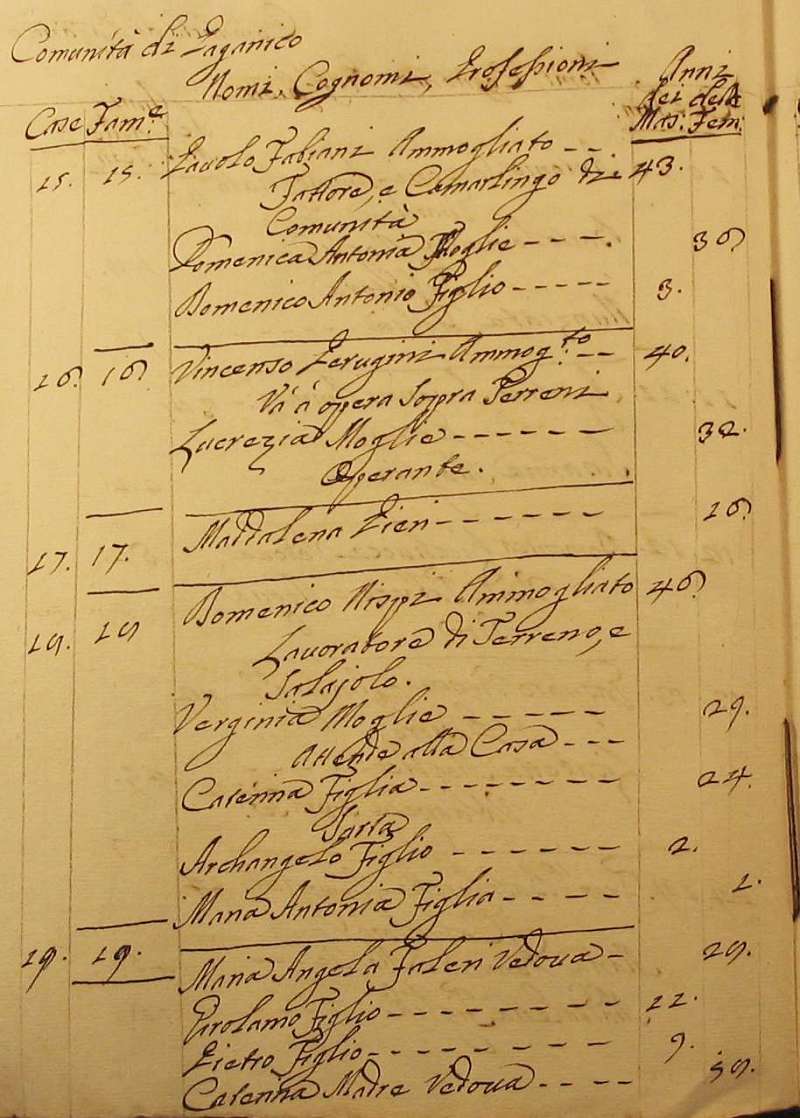 Comunità di Paganico
Nomi, Cognomi, Professioni
Anni
dei delle
Case Fam.e Mas. Fem.
15. 15. Pauolo Fabiani Ammogliato -- 43.
Fattore, e Camarlingo di
Comunità
Domenica Antonia Moglie ---- 36
Domenico Antonio Figlio ----- 3.
16. 16. Vincenso Perugini Ammog.to -- 40.
Và à opera sopra Terreni
Lucrezia Moglie ------ 32.
Operante.
17. 17. Maddalena Pieri ------ 26
18. 18 Domenico Nispi Ammogliato 46
Lauoratore di Terreno, e
Salajolo.
Verginia Moglie ----- 29.
Attende alla Casa ---
Caterina Figlia ------- 24.
Sarta
Archangelo Figlio ------ 2.
Maria Antonia Figlia ---- 1.
19. 19. Maria Angela Faleri Vedoua - 28.
Girolamo Figlio ------- 12.
Pietro Figlio -------- 9.
Caterina Madre Vedoua ---- 58.